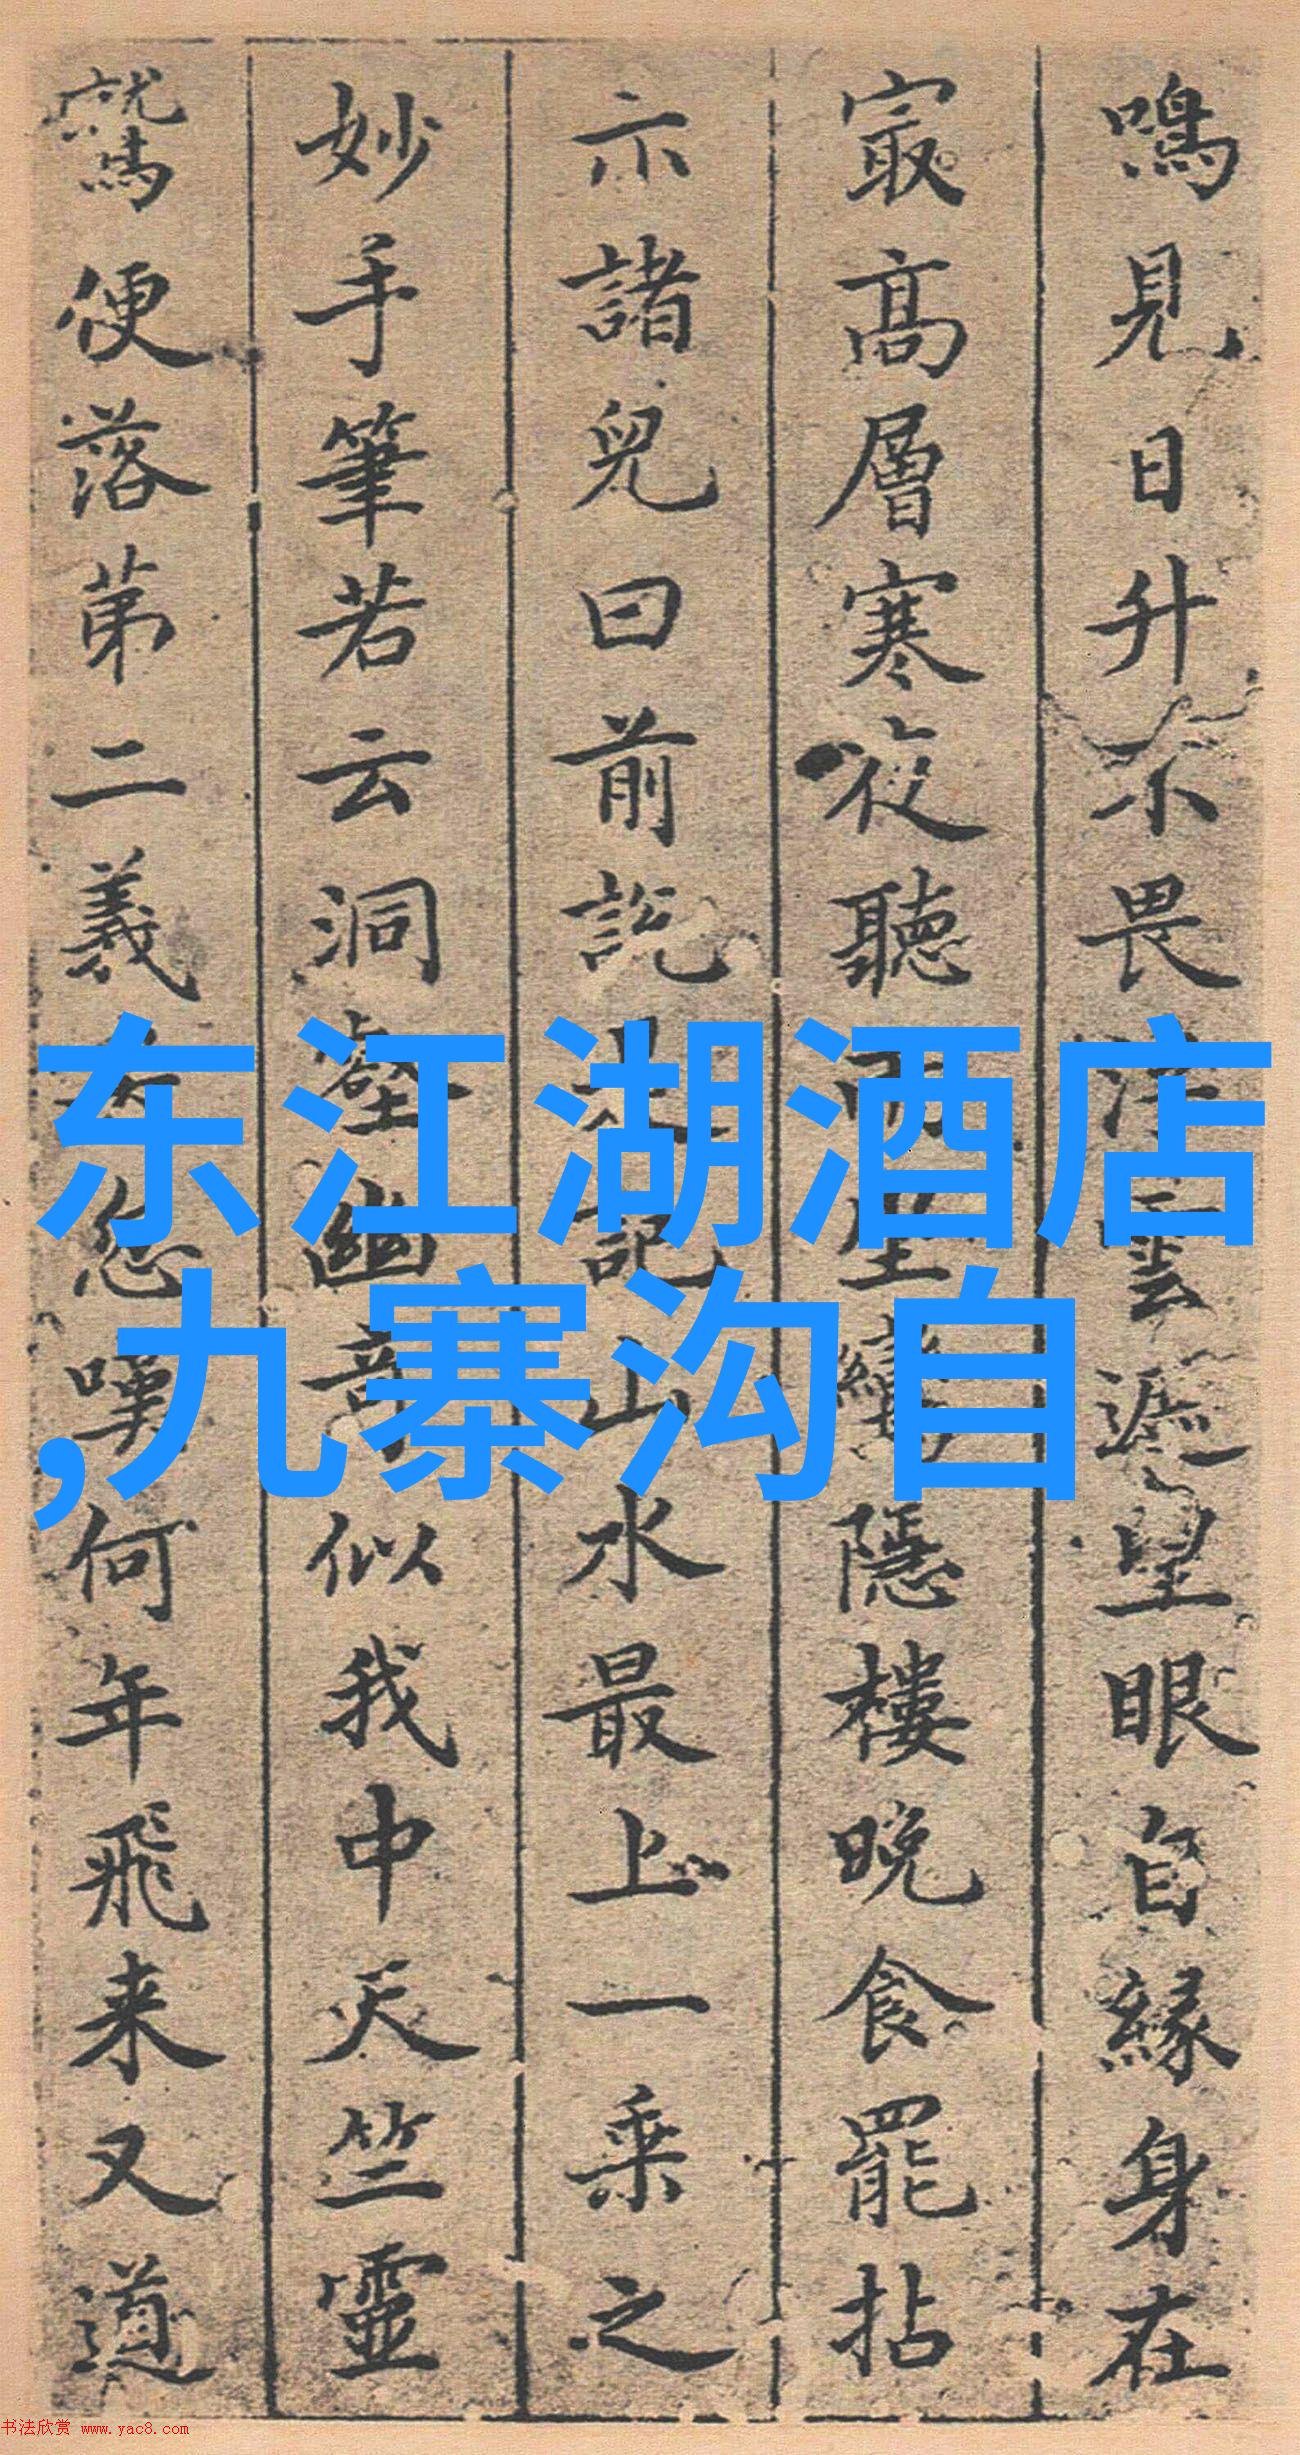 鳴見日升不畏浮雲遮望眼自緣身在
寂高層寒夜聽雨坐繡隱樓晚食罷拈
示諸兒曰前說是記山水最上一乘之
妙手筆若云洞壑幽奇似我中天竺靈
鷲便落第二義矣怨嘆何年飛来又道
东江湖酒店
,九寨沟自
书法欣赏 www.yac8.com